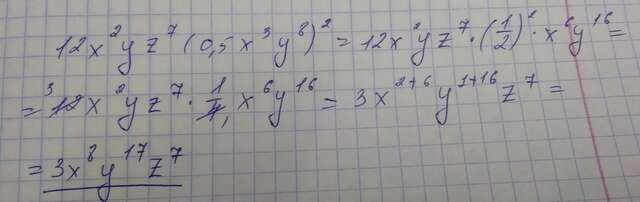 12x²yz⁷(0,5x³y⁸)² = 12x²yz⁷·(1/2)²·x⁶y¹⁶ =
= ³12x²yz⁷·1/4₁x⁶y¹⁶ = 3x²⁺⁶y¹⁺¹⁶z⁷ =
= 3x⁸y¹⁷z⁷